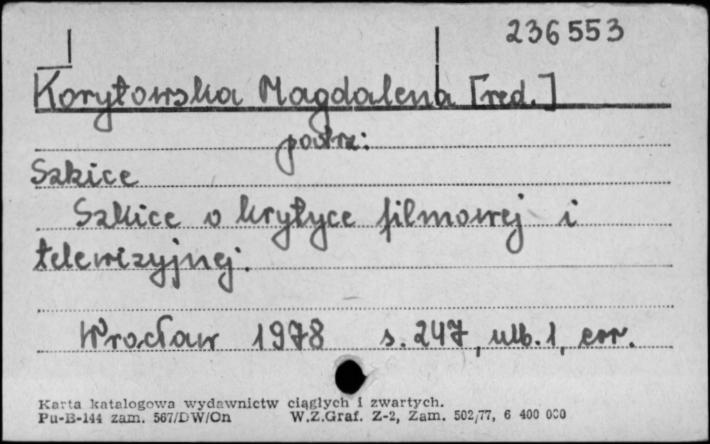 236553
Korytowska Magdalena [red.]
patrz:
Szkice
Szkice o krytyce filmowej i
telewizyjnej.
Wrocław 1978 s. 247, ulb. 1, err.
Karta katalogowa wydawnictw ciągłych i zwartych.
Pu-B-144 zam. 567/DW/On W.Z.Graf. Z-2, Zam. 502/77, 6 400 000